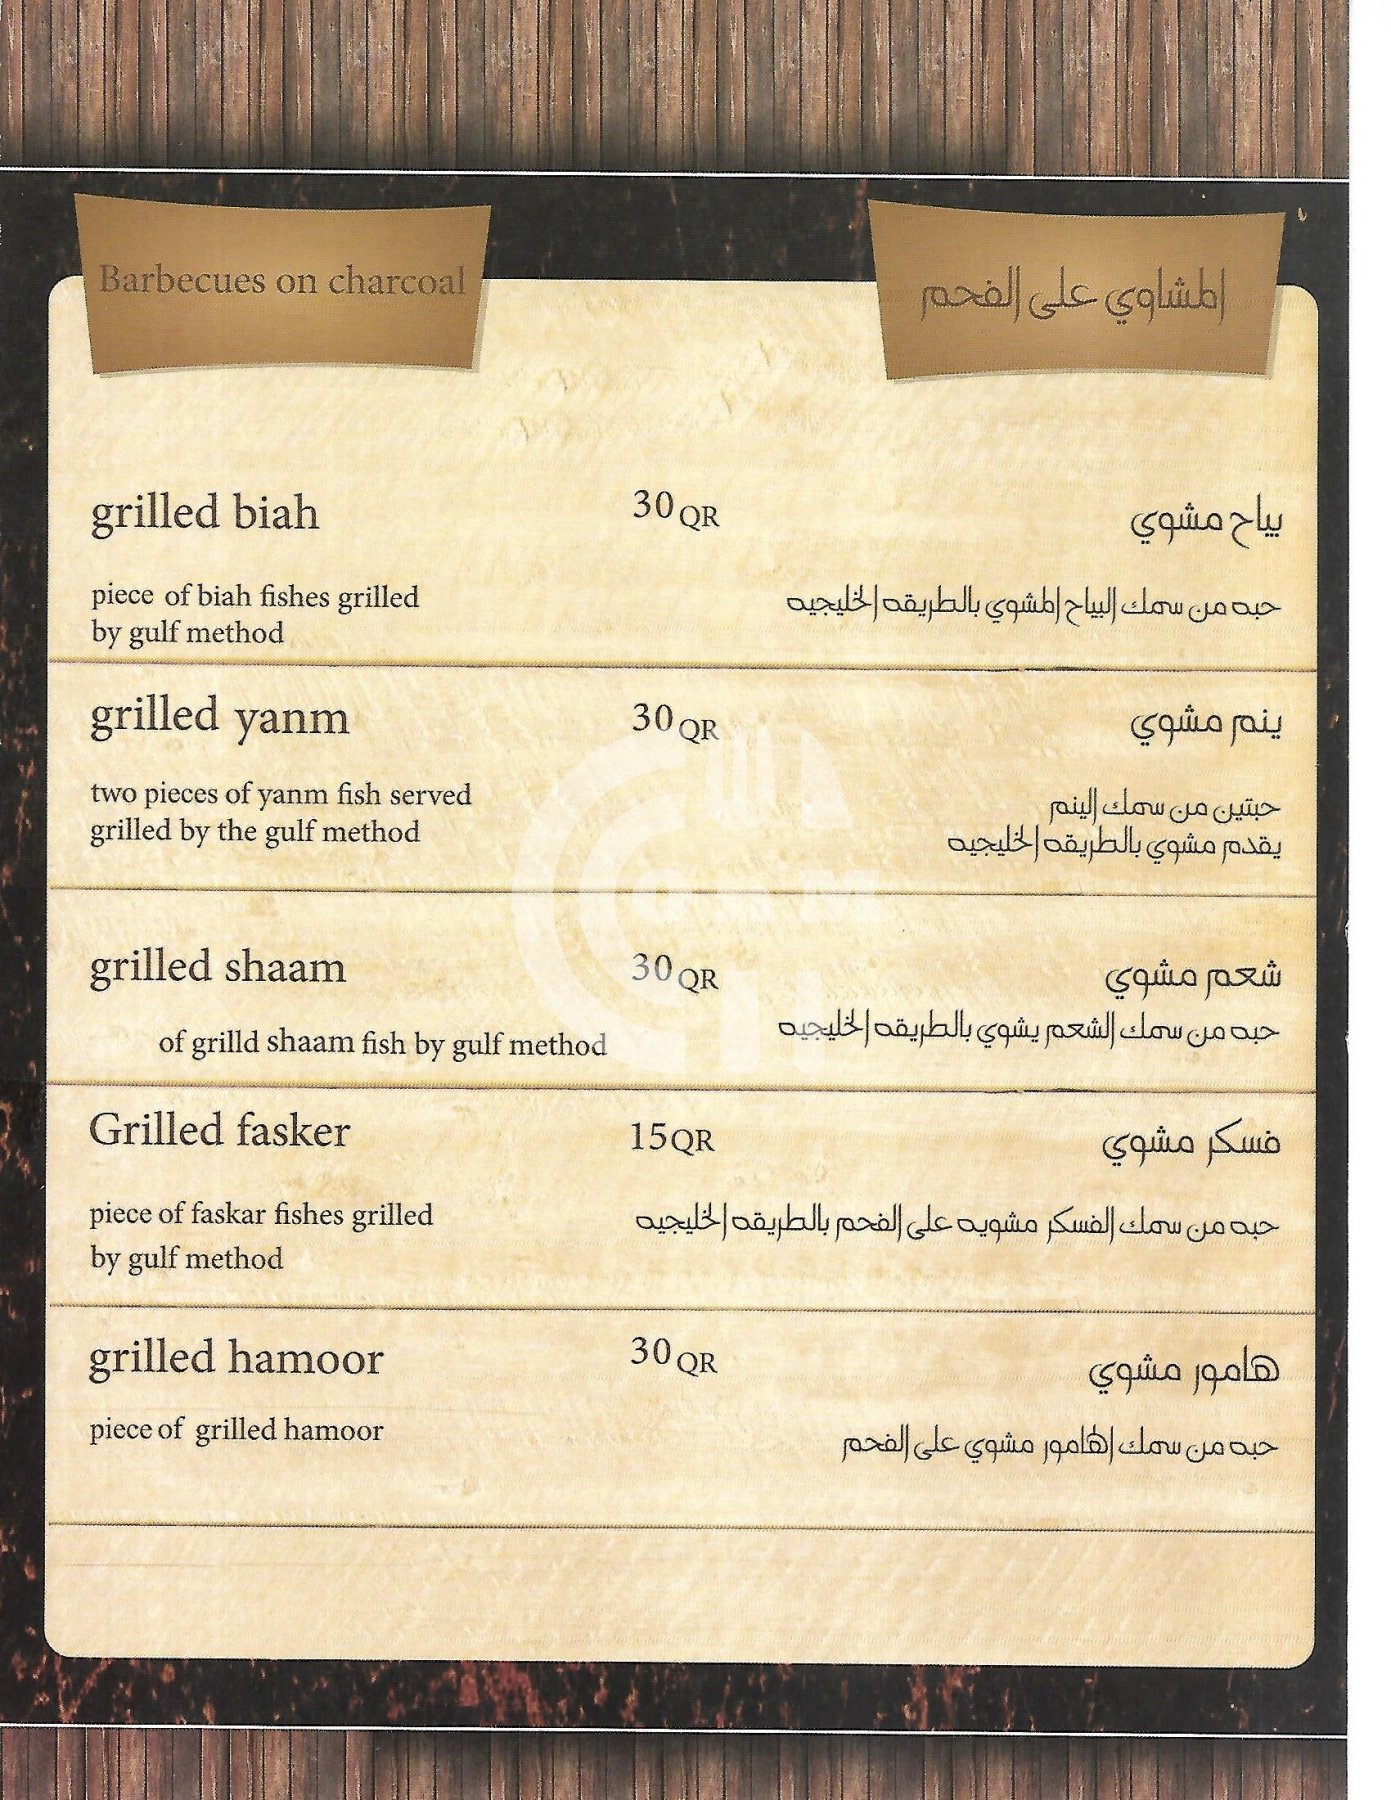 Barbecues on charcoal
المشاوي على الفحم
grilled biah
30 QR
بياح مشوي
piece of biah fishes grilled
by gulf method
حبه من سمك البياح المشوي بالطريقه الخليجيه
grilled yanm
30 QR
ينم مشوي
two pieces of yanm fish served
grilled by the gulf method
حبتين من سمك الينم
يقدم مشوي بالطريقه الخليجيه
grilled shaam
30 QR
شعم مشوي
of grilld shaam fish by gulf method
حبه من سمك الشعم يشوي بالطريقه الخليجيه
Grilled fasker
15 QR
فسكر مشوي
piece of faskar fishes grilled
by gulf method
حبه من سمك الفسكر مشويه على الفحم بالطريقه الخليجيه
grilled hamoor
30 QR
هامور مشوي
piece of grilled hamoor
حبه من سمك الهامور مشوي على الفحم